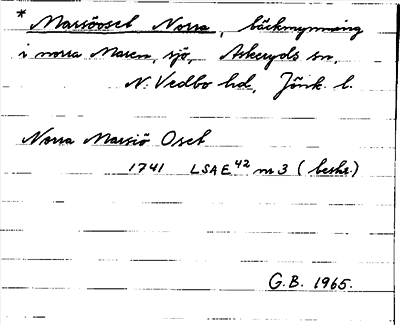 * Marsöoset Norra, bäckmynning
i norra Maren, sjö, Askeryds sn,
N. Vedbo hd, Jönk. l.
Norra Marsiö Oset
1741 LSA E42 nr 3 (beskr.)
G.B. 1965.